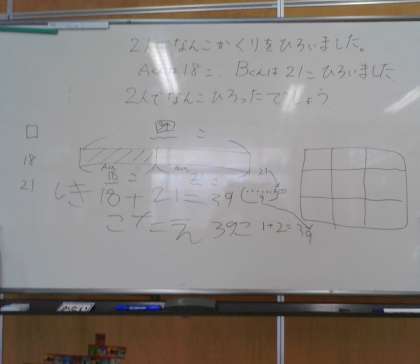 2人でなんこかくりをひろいました。
Aくんは18こ、Bくんは21こひろいました
2人でなんこひろったでしょう
39 こ
18
21
18こ
21
しき 18+21=39
こたえ 39こ 1+2=3